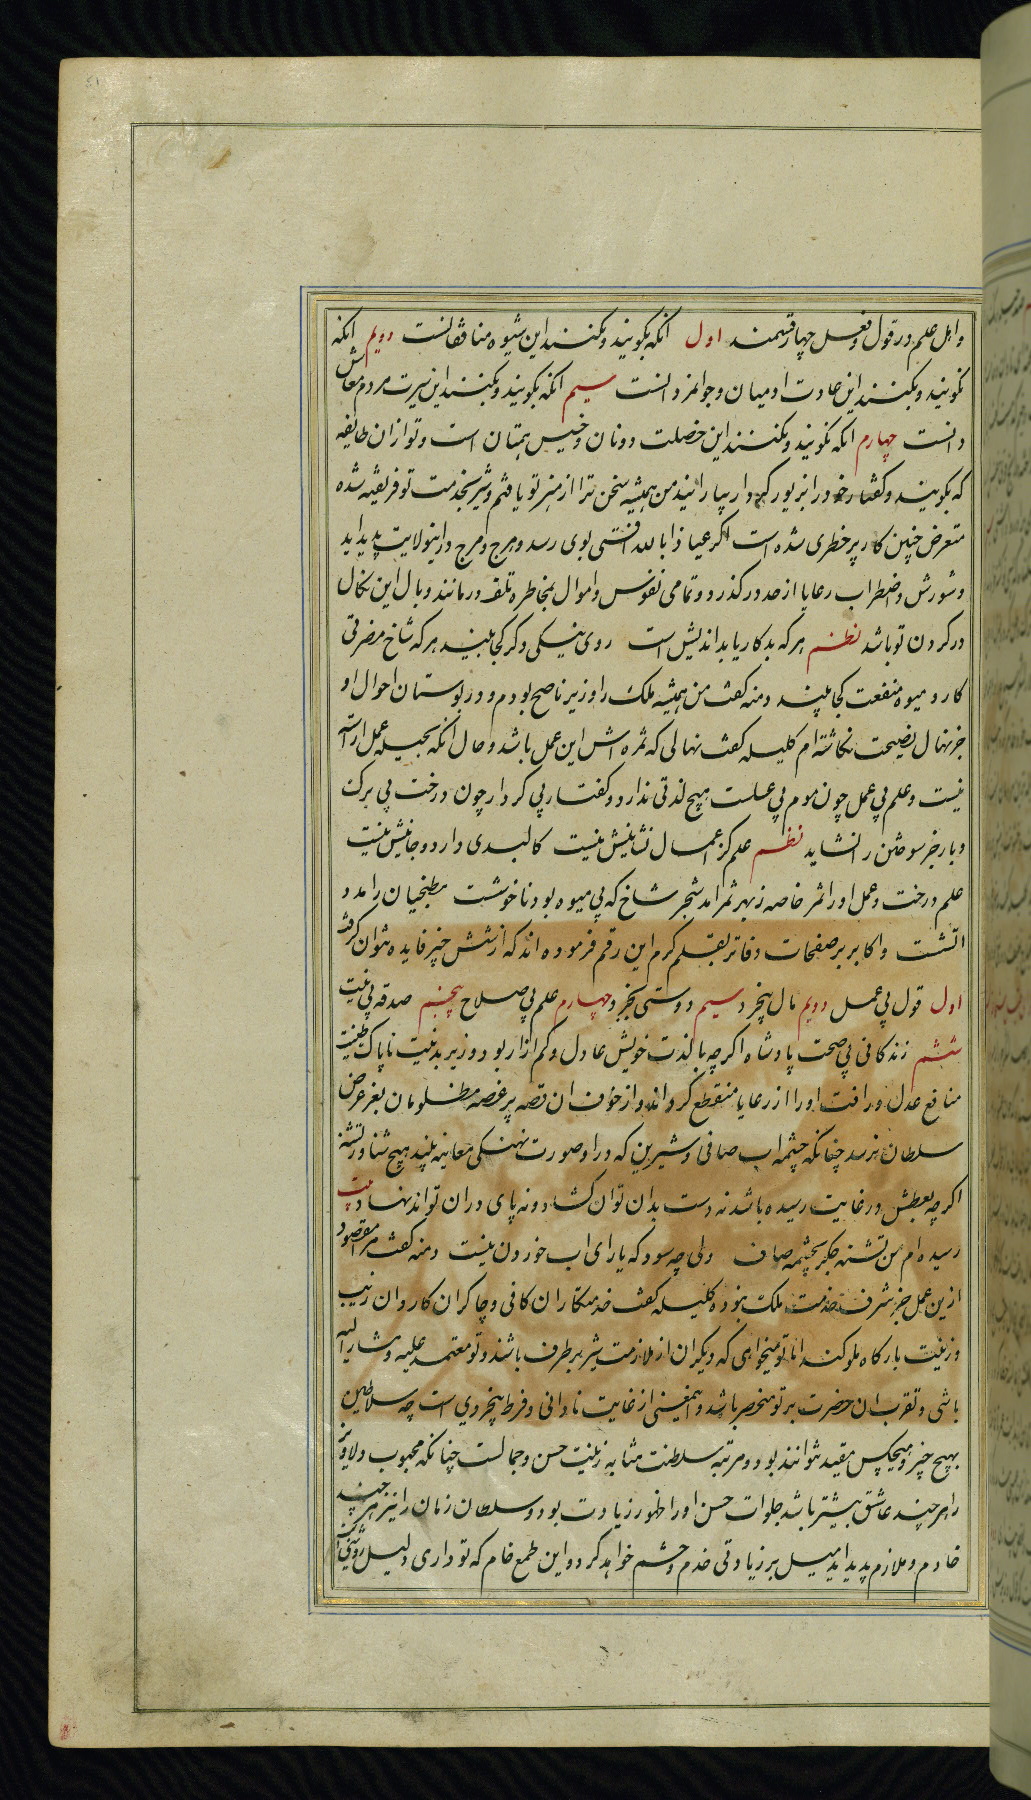 واهل علم در قول و فعل چهار قسمند اول آنکه بکویند و نکنند این شیوه منافقانست دویم آنکه
نکویند و بکنند این عادت آدمیان و جوانمردانست سیم آنکه بکویند و بکنند این سیرت مردم معاش
دانست چهارم آنکه نکویند و نکنند این خصلت دونان و خسیس همتان است و تو ازان طایفه
که بکویند و کفتار خود را بزیور کردار بیارانید من همیشه سخن ترا از هنر تو یافتم و شیر بخدمت تو فریفته شده
متعرض چنین کار پر خطری شده است اکر عیاذا بالله آفتی بوی رسد و هرج و مرج در اینولایت پدید اید
و شورش و اضطراب رعایا از حد درکذرد و تمامی نفوس و اموال بمخاطره تلف در مانند و بال این نکال
در کردن تو باشد نظم هر که بدکار یا بداندیش است روی نیکی دکر کجا بیند هر که شاخ مضرتی
کارد میوه منفعت کجا بیند دمنه کفت من همیشه ملک را وزیر ناصح بودم و در بوستان احوال او
جز نهال نصیحت نکاشته‌ام کلیله کفت نهالی که ثمره‌اش این عمل باشد و حال آنکه بحیله عمل اراسته
نیست و علم بی عمل چون موم بی عسلست هیچ لذتی ندارد و کفتار بی کردار چون درخت بی برک
و بار جز سوختن را نشاید نظم علم کز اعمال نشانیش نیست کالبدی دارد و جانیش نیست
علم درخت و عمل او را ثمر خاصه ز بهر ثمر امد شجر شاخ که بی میوه بود ناخوشست مطبخیان را مدد
اتشست واکابر بر صفحات دفاتر بقلم کرم این رقم فرموده اند که از شش چیز فایده نتوان کرفت
اول قول بی عمل دویم مال بیخرد سیم دوستی بی‌تجربه و چهارم علم بی صلاح پنجم صدقه بی نیت
ششم زندکانی بی صحت پادشاه اکر چه بالذت خویش عادل و کم ازار بود وزیر بد نیت ناپاک طینت
منافع عدل و رافت او را از رعایا منقطع کرداند و از خوف ان قصه پر غصه مظلومان بغرض عرض
سلطان نرسد چنانکه چشمه اب صافی و شیرین که در او صورت نهنکی معاینه بیند هیچ شناور تشنه
اکر چه بعطش در غایت رسیده باشد نه دست بدان توان کشاد و نه پای دران تواند نهاد بیت
رسیده ام من تشنه جکر بچشمه صاف ولی چه سود که یارای اب خوردن نیست دمنه کفت مرا مقصود
ازین عمل جز شرف خدمت ملک نبوده کلیله کفت خدمتکاران کافی و چاکران کاردان زیب
و زینت بارکاه ملوکند اما تو میخواهی که دیکران از ملازمت شیر بر طرف باشند و تو معتمد علیه و مشارالیه
باشی و تقرب ان حضرت بر تو منحصر باشد و اینمعنی از غایت نادانی و فرط بیخردیست چه سلاطین
بهیچ چیز و هیچکس مقید نتوانند بود و مرتبه سلطنت مثابه زینت حسن و جمالست چنانکه محبوب دلاویز
را هر چند عاشق بیشتر باشد جلوات حسن او را ظهور زیادت بود و سلطان زمان را نیز هر چند
خادم و ملازم پدید اید میل بر زیادتی خدم و حشم خواهد کرد و این طمع خام که تو داری دلیل روشنی